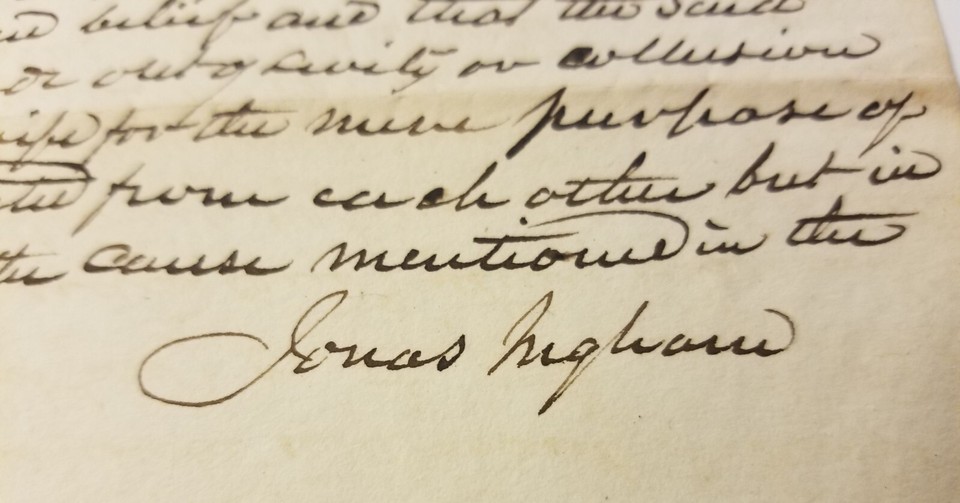 belief and that the said
or out of levity or collusion
wife for the mere purpose of
from each other but in
the cause mentioned in the
Jonas Ingham